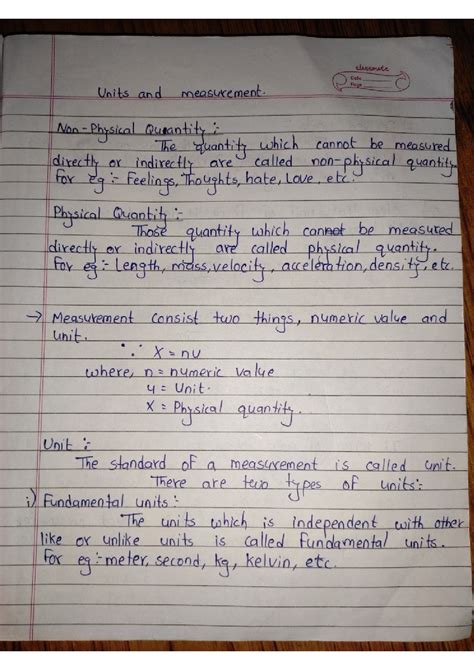 classmate
Date
Page
Units and measurement.
Non-Physical Quantity :-
The quantity which cannot be measured
directly or indirectly are called non-physical quantity
For eg :- Feelings, Thoughts, hate, Love, etc.
Physical Quantity :-
Those quantity which cannot be measured
directly or indirectly are called physical quantity.
For eg :- Length, mass, velocity, acceleration, density, etc.
→ Measurement consist two things, numeric value and
unit.
∵ X = nu
where, n = numeric value
u = Unit.
X = Physical quantity.
Unit :-
The standard of a measurement is called unit.
There are two types of units :-
i) Fundamental units :-
The units which is independent with other
like or unlike units is called fundamental units.
For eg :- meter, second, kg, kelvin, etc.